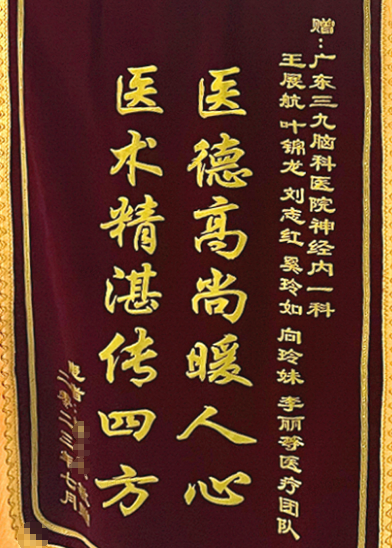 赠：广东三九脑科医院神经内一科
王展航 叶锦龙 刘志红 奚玲如 向玲妹 李丽等医疗团队
医德高尚暖人心
医术精湛传四方
患者：
二零二三年七月